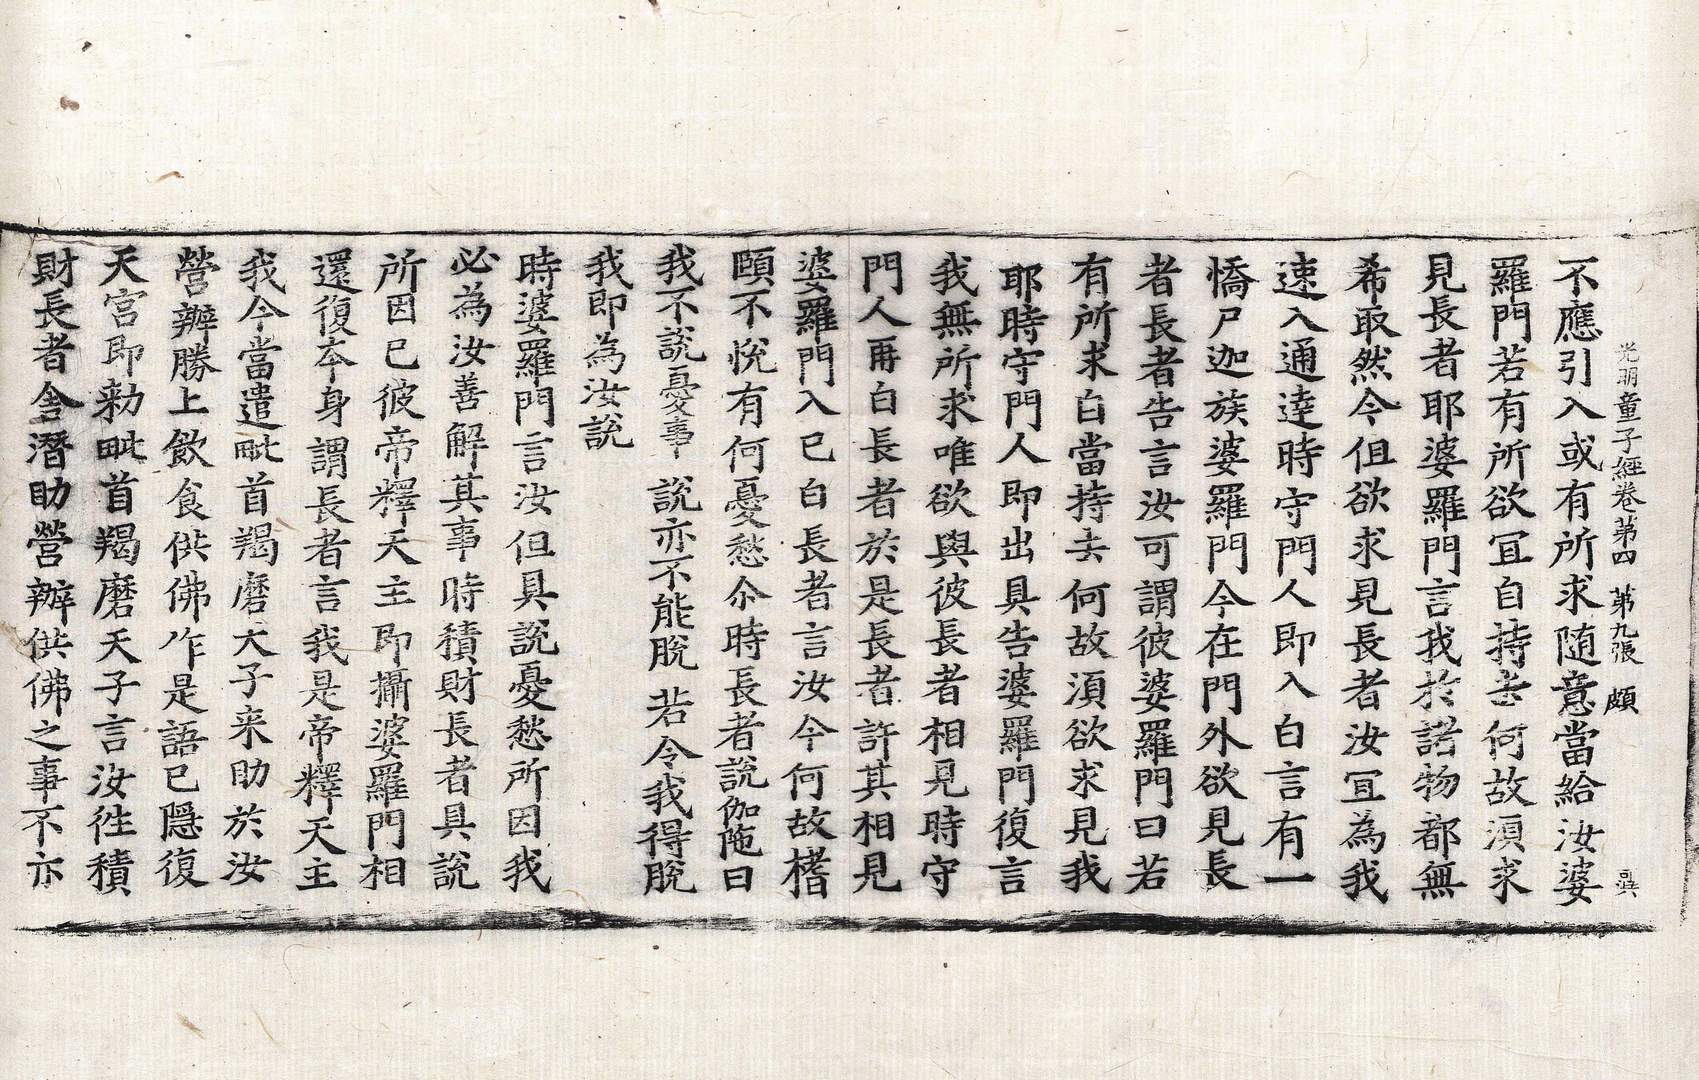 光明童子經卷第四　第九張　頗
不應引入或有所求随意當給汝婆
羅門若有所欲冝自持去何故湏求
見長者耶婆羅門言我於諸物都無
希取然今但欲求見長者汝冝為我
速入通逹時守門人即入白言有一
憍尸迦族婆羅門今在門外欲見長
者長者告言汝可謂彼婆羅門曰若
有所求白當持去何故湏欲求見我
耶時守門人即出具告婆羅門復言
我無所求唯欲與彼長者相見時守
門人再白長者於是長者許其相見
婆羅門入已白長者言汝今何故楮
頤不悅有何憂愁尒時長者說伽陁曰
我不說憂事　說亦不能脫　若令我得脫
我即為汝説
時婆羅門言汝但具說憂愁所因我
必為汝善解其事時積財長者具說
所因已彼帝釋天主即攝婆羅門相
還復本身謂長者言我是帝釋天主
我今當遣毗首羯磨天子来助於汝
營辦勝上飲食供佛作是語已隱復
天宫即勑毗首羯磨天子言汝徃積
財長者舎潛助營辦供佛之事不亦